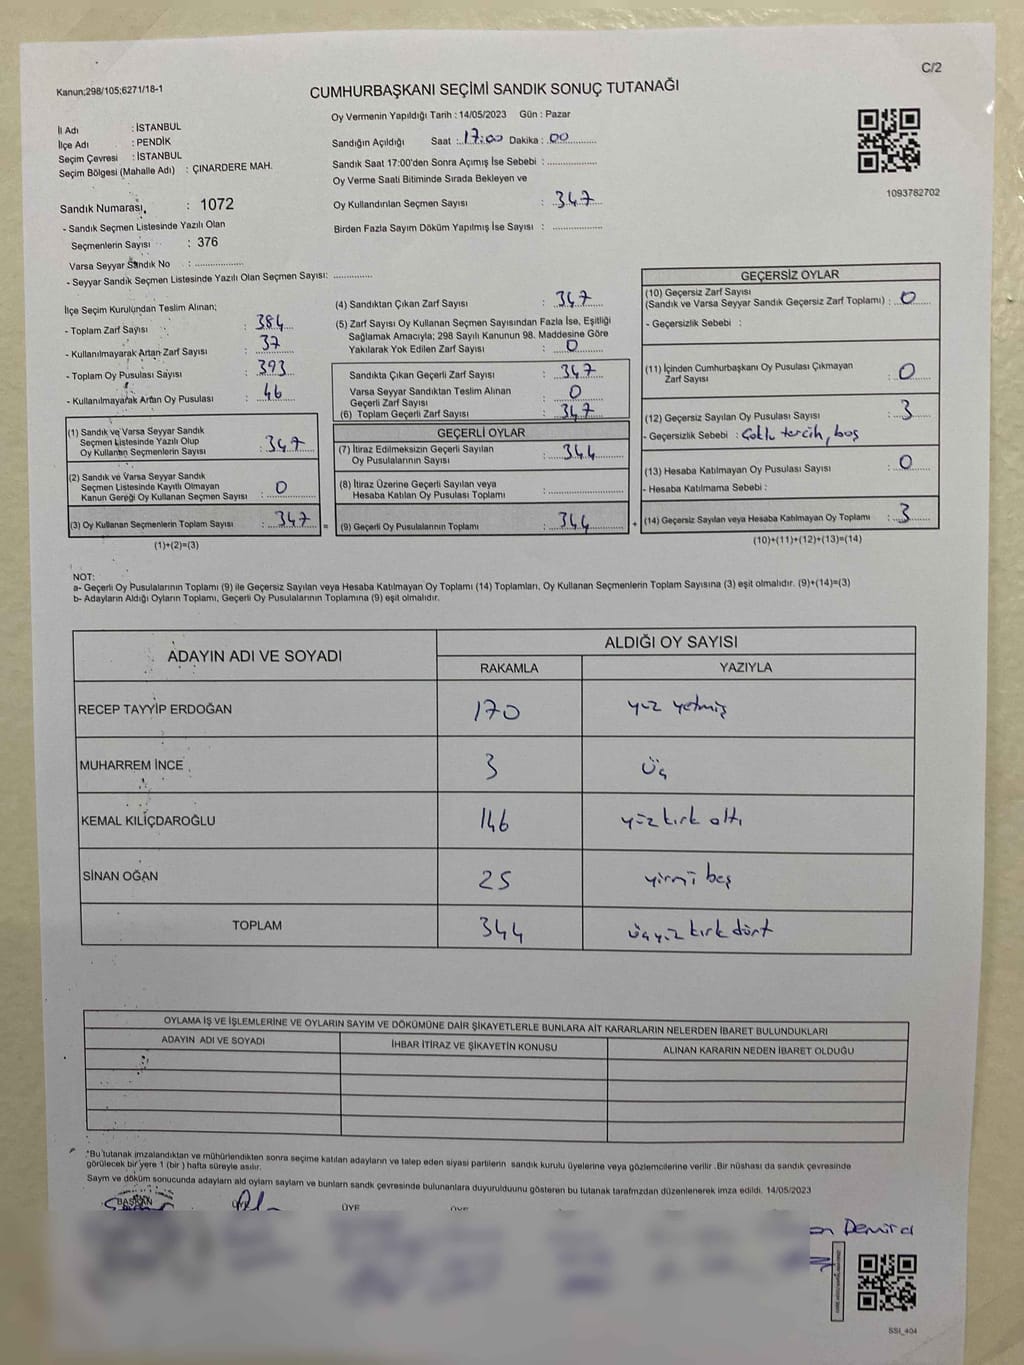 C/2
Kanun;298/105;6271/18-1
CUMHURBAŞKANI SEÇİMİ SANDIK SONUÇ TUTANAĞI
İl Adı : İSTANBUL
İlçe Adı : PENDİK
Seçim Çevresi : İSTANBUL
Seçim Bölgesi (Mahalle Adı) : ÇINARDERE MAH.
Sandık Numarası : 1072
- Sandık Seçmen Listesinde Yazılı Olan
Seçmenlerin Sayısı : 376
Varsa Seyyar Sandık No :
- Seyyar Sandık Seçmen Listesinde Yazılı Olan Seçmen Sayısı:
Oy Vermenin Yapıldığı Tarih : 14/05/2023 Gün : Pazar
Sandığın Açıldığı Saat : 17:00 Dakika : 00
Sandık Saat 17:00'den Sonra Açımış İse Sebebi :
Oy Verme Saati Bitiminde Sırada Bekleyen ve
Oy Kullandırılan Seçmen Sayısı : 347
Birden Fazla Sayım Döküm Yapılmış İse Sayısı :
1093782702
İlçe Seçim Kurulundan Teslim Alınan;
- Toplam Zarf Sayısı : 384
- Kullanılmayarak Artan Zarf Sayısı : 37
- Toplam Oy Pusulası Sayısı : 393
- Kullanılmayarak Artan Oy Pusulası : 46
(1) Sandık ve Varsa Seyyar Sandık
Seçmen Listesinde Yazılı Olup
Oy Kullanan Seçmenlerin Sayısı : 347
(2) Sandık ve Varsa Seyyar Sandık
Seçmen Listesinde Kayıtlı Olmayan
Kanun Gereği Oy Kullanan Seçmen Sayısı : 0
(3) Oy Kullanan Seçmenlerin Toplam Sayısı : 347 =
(1)+(2)=(3)
(4) Sandıktan Çıkan Zarf Sayısı : 347
(5) Zarf Sayısı Oy Kullanan Seçmen Sayısından Fazla İse, Eşitliği
Sağlamak Amacıyla; 298 Sayılı Kanunun 98. Maddesine Göre
Yakılarak Yok Edilen Zarf Sayısı : 0
Sandıkta Çıkan Geçerli Zarf Sayısı : 347
Varsa Seyyar Sandıktan Teslim Alınan
Geçerli Zarf Sayısı : 0
(6) Toplam Geçerli Zarf Sayısı : 347
GEÇERLİ OYLAR
(7) İtiraz Edilmeksizin Geçerli Sayılan
Oy Pusulalarının Sayısı : 344
(8) İtiraz Üzerine Geçerli Sayılan veya
Hesaba Katılan Oy Pusulası Toplamı :
(9) Geçerli Oy Pusulalarının Toplamı : 344 +
GEÇERSİZ OYLAR
(10) Geçersiz Zarf Sayısı
(Sandık ve Varsa Seyyar Sandık Geçersiz Zarf Toplamı) : 0
- Geçersizlik Sebebi :
(11) İçinden Cumhurbaşkanı Oy Pusulası Çıkmayan
Zarf Sayısı : 0
(12) Geçersiz Sayılan Oy Pusulası Sayısı : 3
- Geçersizlik Sebebi : Çoklu tercih, boş
(13) Hesaba Katılmayan Oy Pusulası Sayısı : 0
- Hesaba Katılmama Sebebi :
(14) Geçersiz Sayılan veya Hesaba Katılmayan Oy Toplamı : 3
(10)+(11)+(12)+(13)=(14)
NOT:
a- Geçerli Oy Pusulalarının Toplamı (9) ile Geçersiz Sayılan veya Hesaba Katılmayan Oy Toplamı (14) Toplamları, Oy Kullanan Seçmenlerin Toplam Sayısına (3) eşit olmalıdır. (9)+(14)=(3)
b- Adayların Aldığı Oyların Toplamı, Geçerli Oy Pusulalarının Toplamına (9) eşit olmalıdır.
ADAYIN ADI VE SOYADI ALDIĞI OY SAYISI
RAKAMLA YAZIYLA
RECEP TAYYİP ERDOĞAN 170 yüz yetmiş
MUHARREM İNCE 3 üç
KEMAL KILIÇDAROĞLU 146 yüz kırk altı
SİNAN OĞAN 25 yirmi beş
TOPLAM 344 üçyüz kırk dört
OYLAMA İŞ VE İŞLEMLERİNE VE OYLARIN SAYIM VE DÖKÜMÜNE DAİR ŞİKAYETLERLE BUNLARA AİT KARARLARIN NELERDEN İBARET BULUNDUKLARI
ADAYIN ADI VE SOYADI İHBAR İTİRAZ VE ŞİKAYETİN KONUSU ALINAN KARARIN NEDEN İBARET OLDUĞU
*Bu tutanak imzalandıktan ve mühürlendikten sonra seçime katılan adayların ve talep eden siyasi partilerin sandık kurulu üyelerine veya gözlemcilerine verilir .Bir nüshası da sandık çevresinde
görülecek bir yere 1 (bir ) hafta süreyle asılır.
Sayım ve döküm sonucunda adayların ald oyların saylam ve bunların sandk çevresinde bulunanlara duyurulduunu gösteren bu tutanak tarafmzdan düzenlenerek imza edildi. 14/05/2023
BAŞKAN ÜYE ÜYE
Demirel
SSI_404